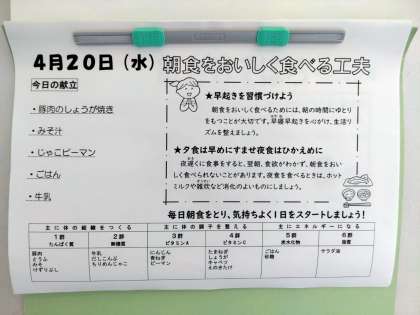 4月20日（水）朝食をおいしく食べる工夫
今日の献立
・豚肉のしょうが焼き
・みそ汁
・じゃこピーマン
・ごはん
・牛乳
★早起きを習慣づけよう
朝食をおいしく食べるためには、朝の時間にゆとり
をもつことが大切です。早寝早起きを心がけ、生活リ
ズムを整えましょう。
★夕食は早めにすませ夜食はひかえめに
夜遅くに食事をすると、翌朝、食欲がわかず、朝食をおい
しく食べられないことがあります。夜食を食べるときは、ホット
ミルクや雑炊など消化のよいものにしましょう。
毎日朝食をとり、気持ちよく1日をスタートしましょう！
主に体の組織をつくる
主に体の調子を整える
主にエネルギーになる
1群 2群 3群 4群 5群 6群
たんぱく質 無機質 ビタミンA ビタミンC 炭水化物 脂質
豚肉
とうふ
みそ
けずりぶし
牛乳
だしこんぶ
ちりめんじゃこ
にんじん
青ねぎ
ピーマン
たまねぎ
しょうが
キャベツ
えのきたけ
ごはん
砂糖
サラダ油